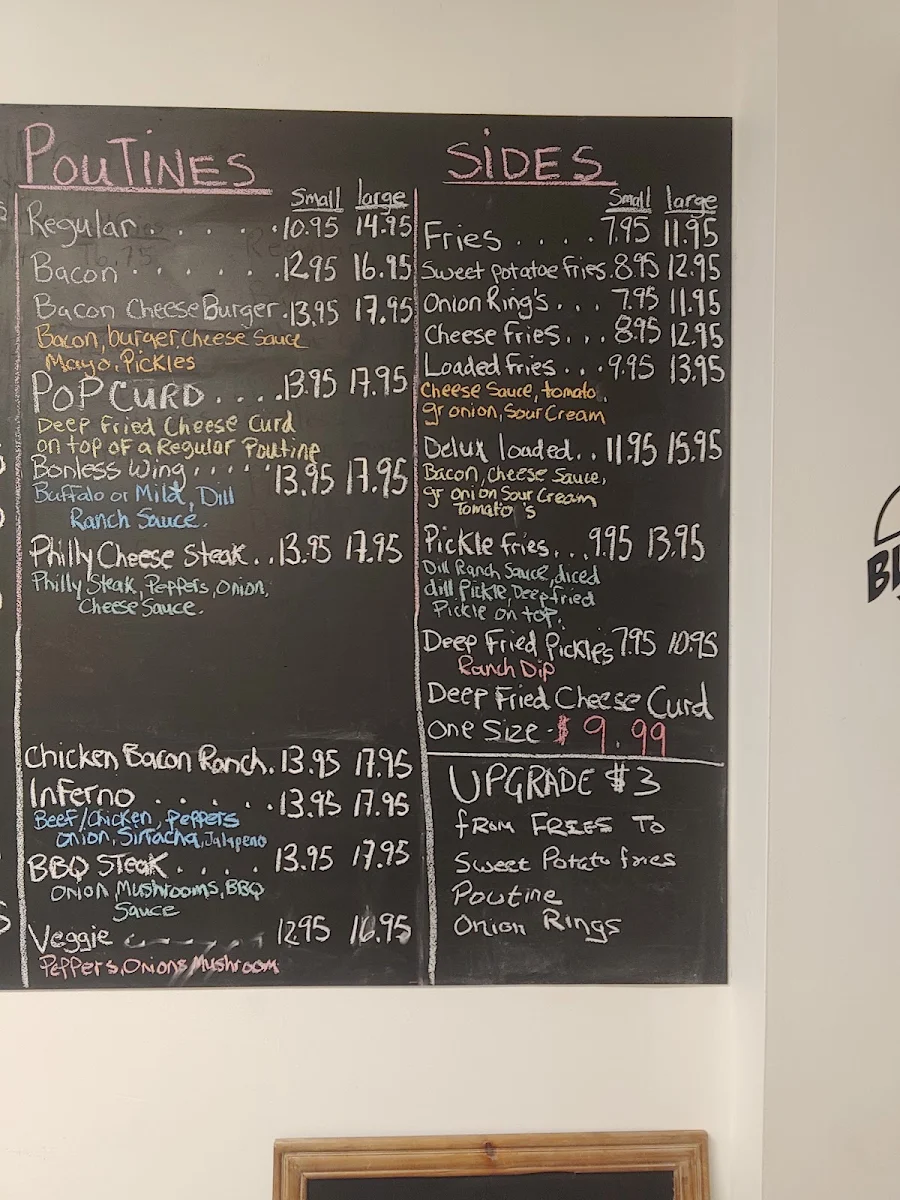 POUTINES
Small large
Regular . . . . . 10.95 14.95
Bacon . . . . . . . 12.95 16.95
Bacon Cheese Burger . 13.95 17.95
Bacon, burger, Cheese Sauce
Mayo, Pickles
POP CURD . . . . 13.95 17.95
Deep Fried Cheese Curd
on top of a Regular Poutine
Bonless Wing . . . . . 13.95 17.95
Buffalo or Mild, Dill
Ranch Sauce.
Philly Cheese Steak . . 13.95 17.95
Philly Steak, Peppers, Onion,
Cheese Sauce.
Chicken Bacon Ranch . 13.95 17.95
Inferno . . . . . . 13.95 17.95
Beef/Chicken, Peppers
Onion, Sirracha, Jalapeno
BBQ Steak . . . . 13.95 17.95
Onion, Mushrooms, BBQ
Sauce
Veggie 12.95 16.95
Peppers, Onions, Mushroom
SIDES
Small large
Fries . . . . 7.95 11.95
Sweet potatoe fries . 8.95 12.95
Onion Ring's . . . 7.95 11.95
Cheese Fries . . . 8.95 12.95
Loaded Fries . . . 9.95 13.95
Cheese Sauce, tomato,
gr onion, Sour Cream
Delux loaded . . 11.95 15.95
Bacon, Cheese Sauce,
gr onion Sour Cream
Tomato's
Pickle fries . . . 9.95 13.95
Dill Ranch Sauce, diced
dill Pickle, Deep fried
Pickle on top.
Deep Fried Pickles 7.95 10.95
Ranch Dip
Deep Fried Cheese Curd
One Size - $ 9.99
UPGRADE $3
FROM FRIES TO
Sweet Potato fries
Poutine
Onion Rings